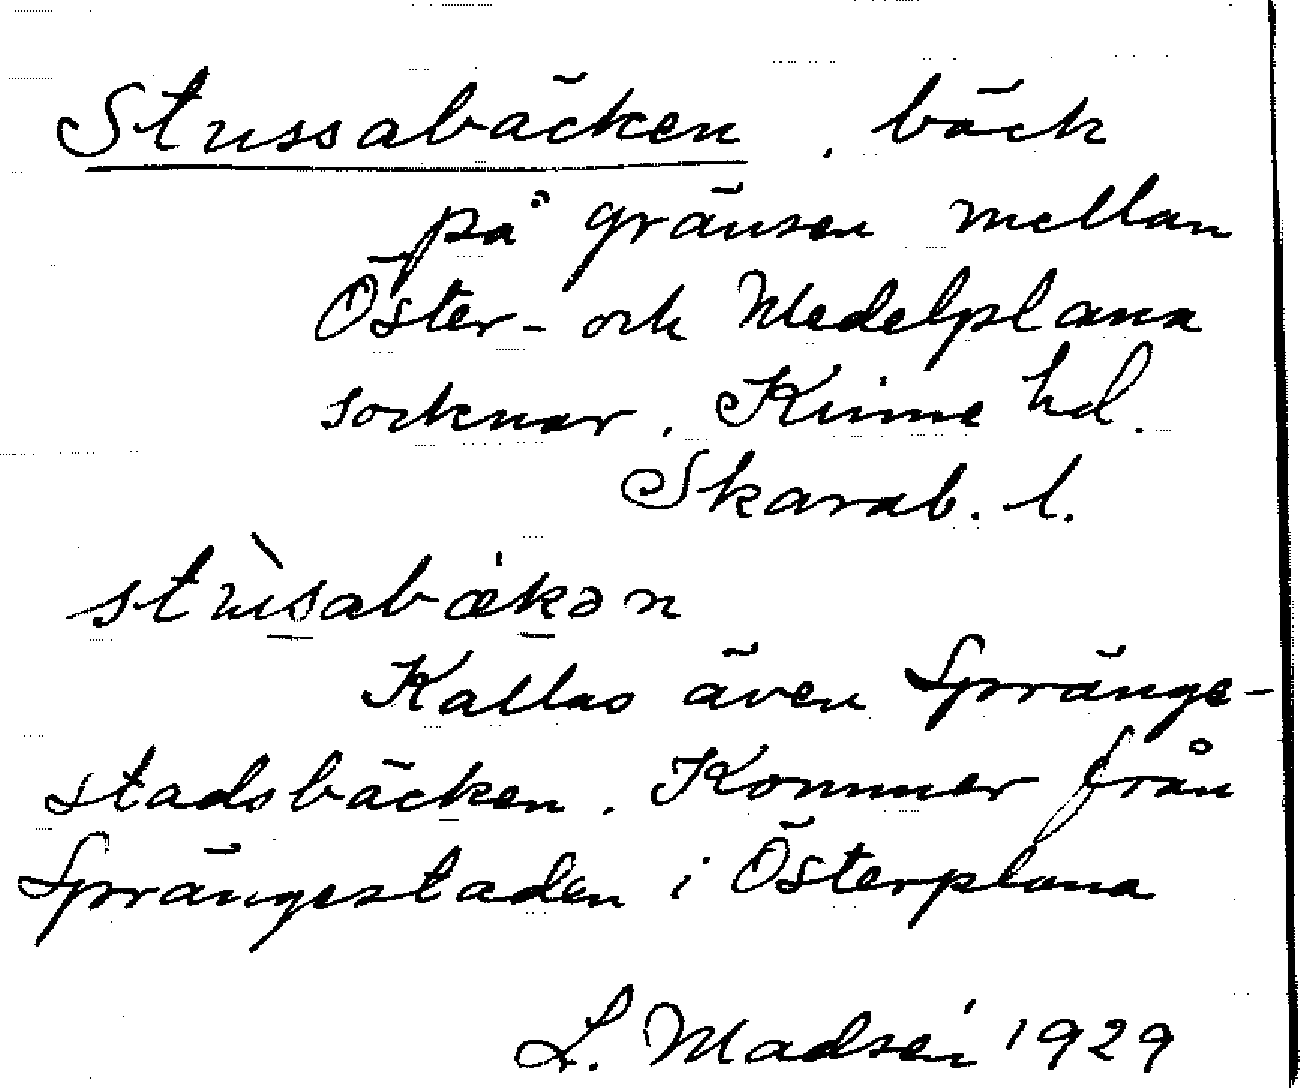 Stussabäcken, bäck
på gränsen mellan
Öster- och Medelplana
socknar, Kinne hd.
Skarab. l.
stùsabækən
Kallas även Spränge-
stadsbäcken. Kommer från
Sprängestaden i Österplana
L. Madsén 1929